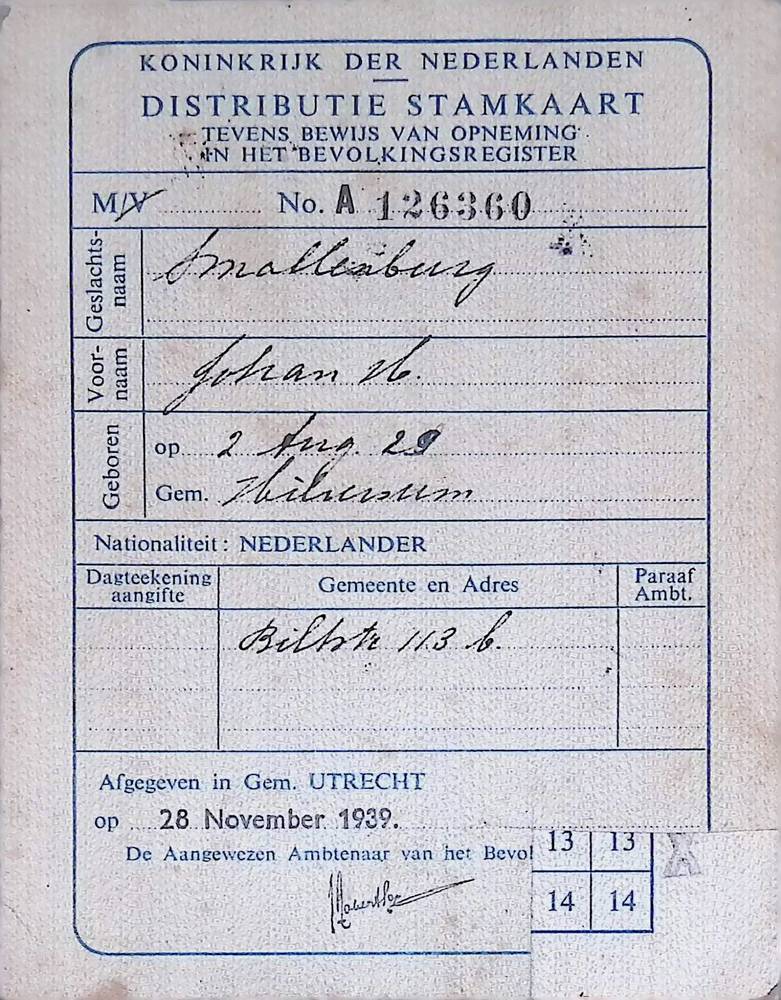 KONINKRIJK DER NEDERLANDEN
DISTRIBUTIE STAMKAART
TEVENS BEWIJS VAN OPNEMING
IN HET BEVOLKINGSREGISTER
M/V No. A 126360
Geslachts-
naam
Smallenburg
Voor-
naam
Johan H.
Geboren
op 2 Aug. 29
Gem. Hilversum
Nationaliteit: NEDERLANDER
Dagteekening
aangifte
Gemeente en Adres
Paraaf
Ambt.
Biltstr 113 b.
Afgegeven in Gem. UTRECHT
op 28 November 1939.
De Aangewezen Ambtenaar van het Bevol
13 13
14 14